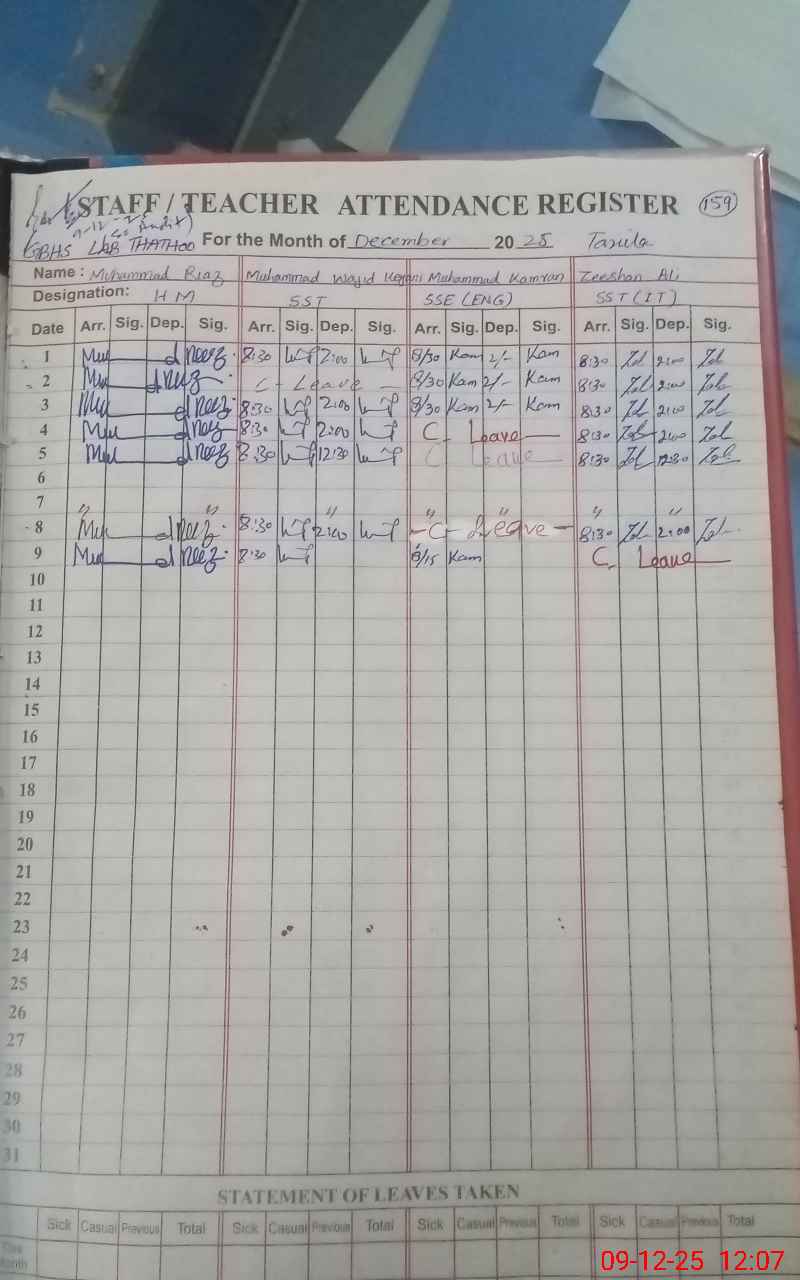 STAFF / TEACHER ATTENDANCE REGISTER 159
GBHS LAB THATHOO For the Month of December 2025 Taxila
Name: Muhammad Riaz Muhammad Wajid Muhammad Kamran Zeeshan Ali
Designation: HM SST SSE (ENG) SST (IT)
Date Arr. Sig. Dep. Sig. Arr. Sig. Dep. Sig. Arr. Sig. Dep. Sig. Arr. Sig. Dep. Sig.
1 8:30 2:00 8/30 Kam 2/- Kam 8:30 2:00
2 C - Leave - 8/30 Kam 2/- Kam 8:30 2:00
3 8:30 2:00 8/30 Kam 2/- Kam 8:30 2:00
4 8:30 2:00 C Leave 8:30 2:00
5 8:30 12:30 C Leave 8:30 12:30
6
7
8 8:30 2:00 - C - Leave - 8:30 2:00
9 8:30 8/15 Kam C. Leave
10
11
12
13
14
15
16
17
18
19
20
21
22
23
24
25
26
27
28
29
30
31
STATEMENT OF LEAVES TAKEN
Sick Casual Previous Total Sick Casual Previous Total Sick Casual Previous Total Sick Casual Previous Total
Month
09-12-25 12:07